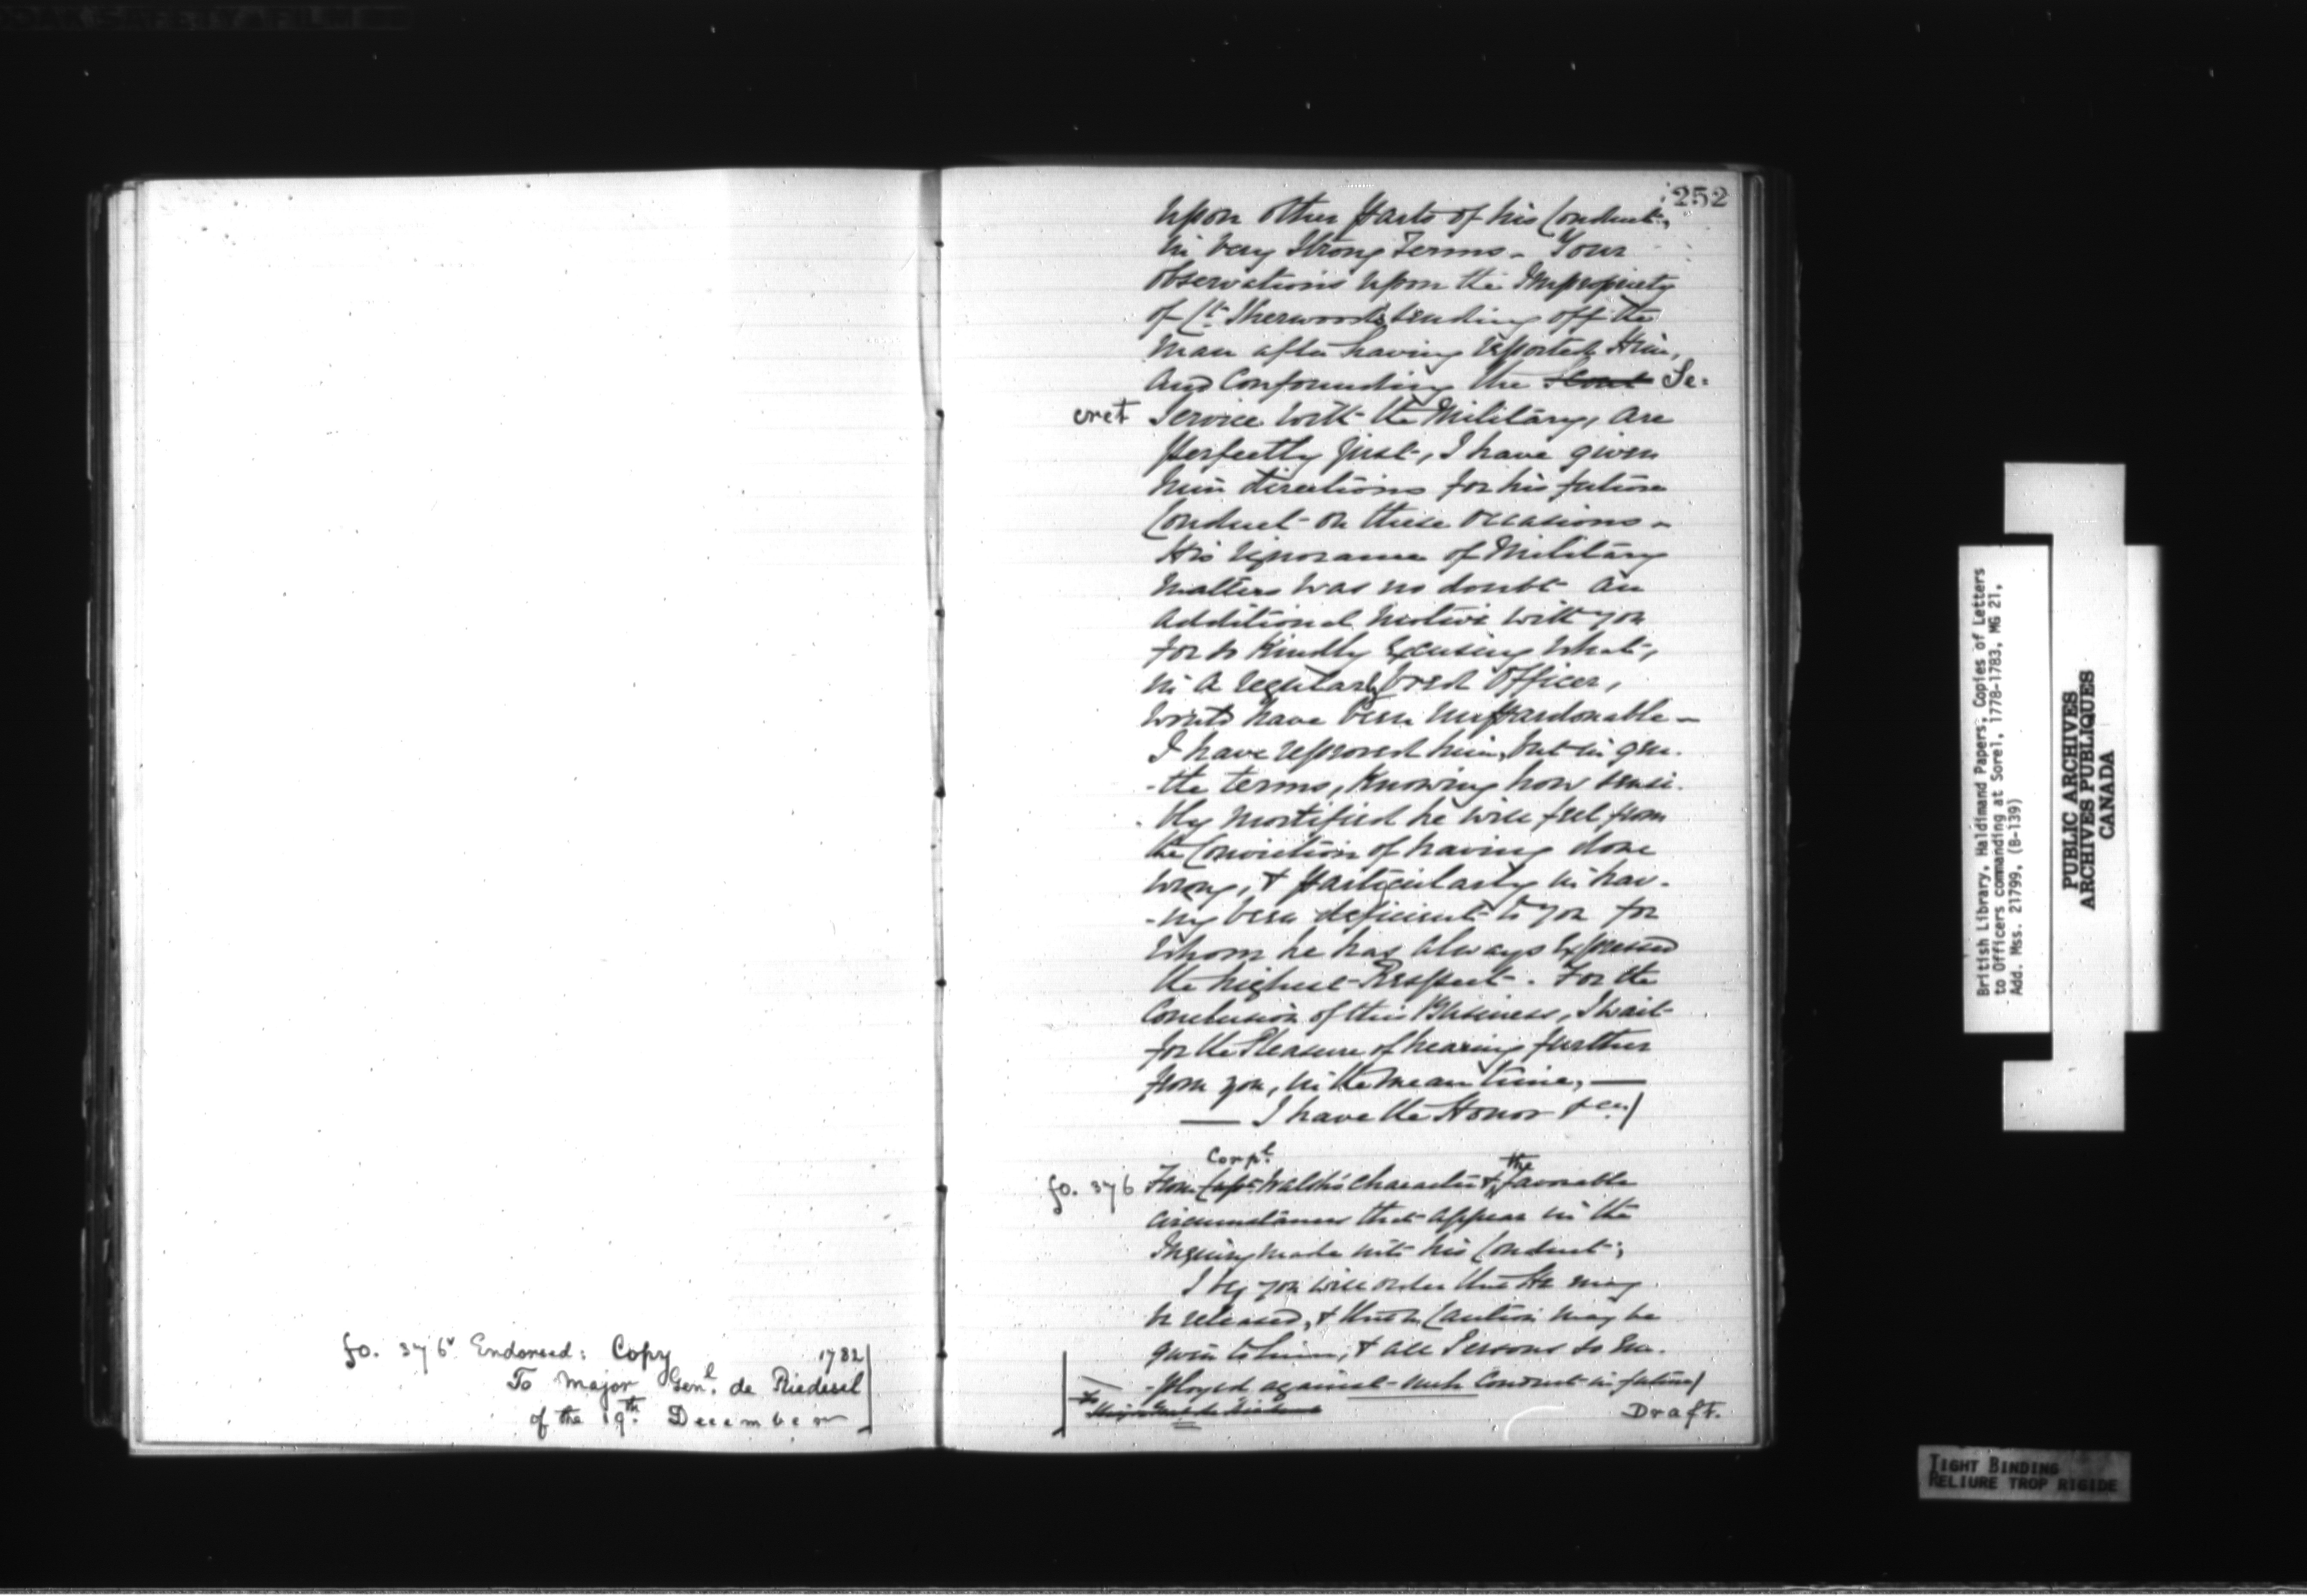 252
upon other Parts of his Conduct,
in very Strong Terms - Your
observations upon the Impropriety
of Ct. Sherwood's sending off the
Man after having reported Him,
and Confounding the Scout Se=
cret Service with the Military, are
perfectly just, I have given
him directions for his future
Conduct on these occasions -
His ignorance of Military
matters was no doubt an
additional motive with you
for so kindly excusing what,
in a regularly bred Officer,
would have been unpardonable -
I have reproved him, but in gen-
-tle terms, knowing how sensi-
-bly mortified he will feel from
the Conviction of having done
wrong, & particularly in hav-
-ing been deficient to you for
whom he has always Expressed
the highest Respect. For the
Conclusion of this Business, I wait
for the Pleasure of hearing further
from you, in the mean time, —
— I have the Honor &ca)
Corpl. the
fo. 376 From Capt. Walsh's Character & favorable
circumstances that appear in the
Inquiry made into his Conduct;
I beg you will order that He may
be released, & that a Caution may be
given to him, & all Persons so Em-
-ployed against such Conduct in future)
Draft.
fo. 376v Endorsed: Copy 1782
To Major Genl. de Riedesel
of the 19th. December
British Library, Haldimand Papers, Copies of Letters
to Officers commanding at Sorel, 1778-1783, MG 21,
Add. Mss. 21799, (B-139)
PUBLIC ARCHIVES
ARCHIVES PUBLIQUES
CANADA
TIGHT BINDING
RELIURE TROP RIGIDE